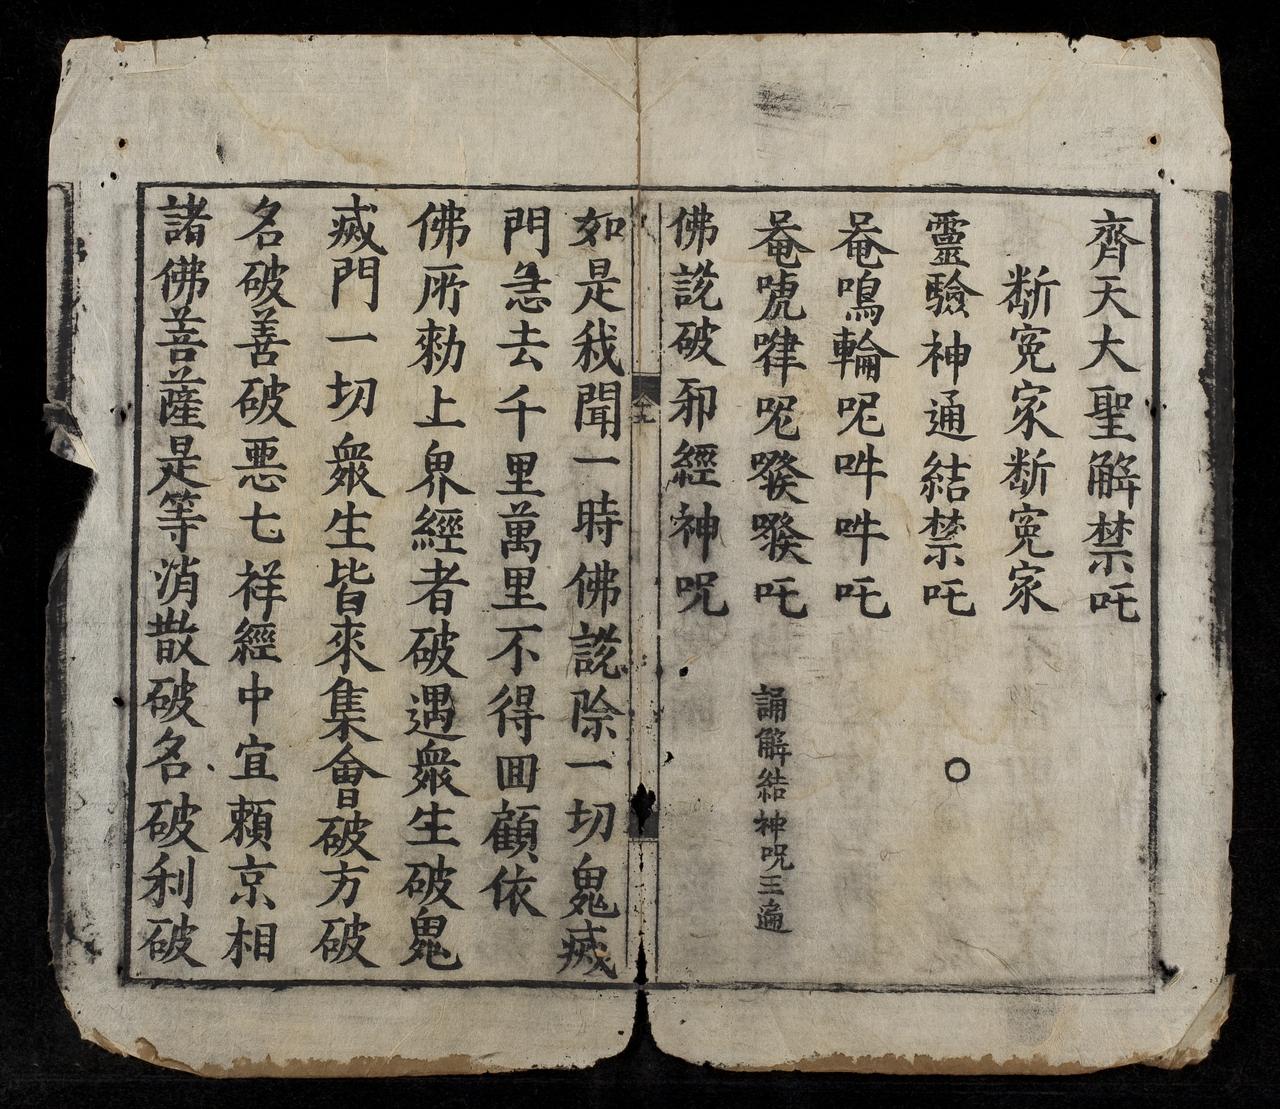 齊天大聖解禁吒
断寃家断寃家
靈驗神通結禁吒
唵鳴輪呢吽吽吒
唵唬㗚呢㗸㗸吒
誦解結神呪三遍
佛説破邪經神呪
如是我聞一時佛説除一切鬼㓕
門急去千里萬里不得囬顧依
佛所勑上界經者破遇衆生破鬼
㓕門一切衆生皆來集會破方破
名破善破悪七祥經中宜賴京相
諸佛菩薩是等消散破名破利破